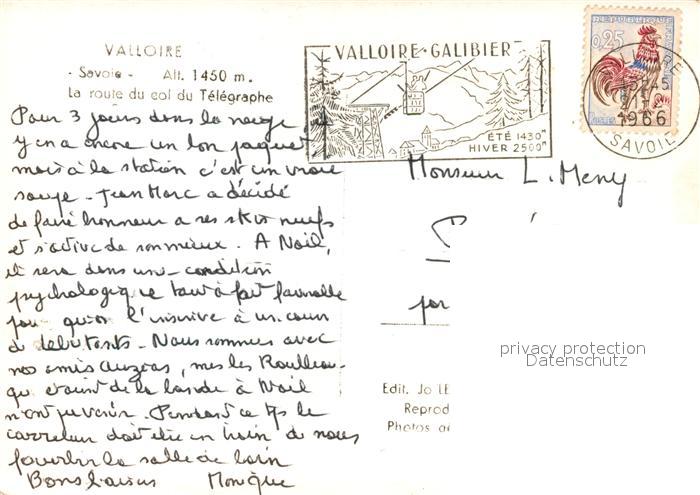 VALLOIRE
- Savoie - Alt. 1450 m.
La route du col du Télégraphe
VALLOIRE-GALIBIER
ÉTÉ 1430m
HIVER 2500m
REPUBLIQUE FRANÇAISE
0,25
POSTES
1966
SAVOIE
Pour 3 jours dans la neige, il
y en a encore un bon paquet
mais à la station c'est un vraie
soupe. Jean Marc a décidé
de faire honneur a ses skis neufs
et s'active de son mieux. A Noël,
il sera dans une condition
psychologique tout à fait favorable
pour qu'on l'inscrive à un cours
de débutants. Nous sommes avec
nos amis mes les
qui étaient de la bande à Noël
n'ont pu venir. Pendant ce tps le
carreleur doit être en train de nous
fourbir la salle de bain
Bons baisers Monique
Monsieur L. Meny
par
privacy protection
Datenschutz
Edit. Jo LE
Reprod
Photos